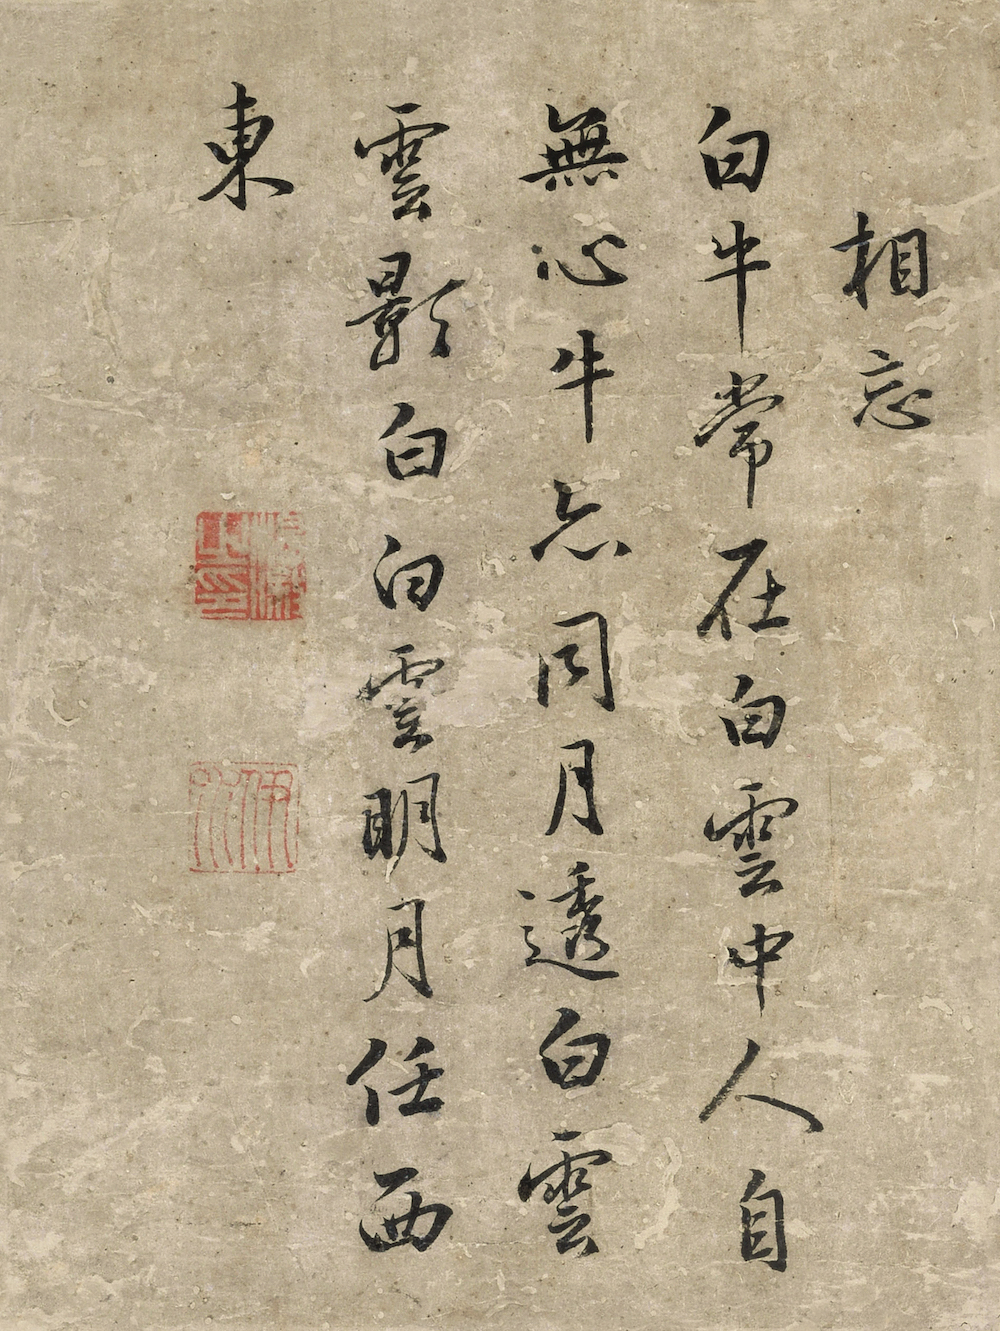 相忘
白牛常在白雲中人自
無心牛亦同月透白雲
雲影白白雲明月任西
東